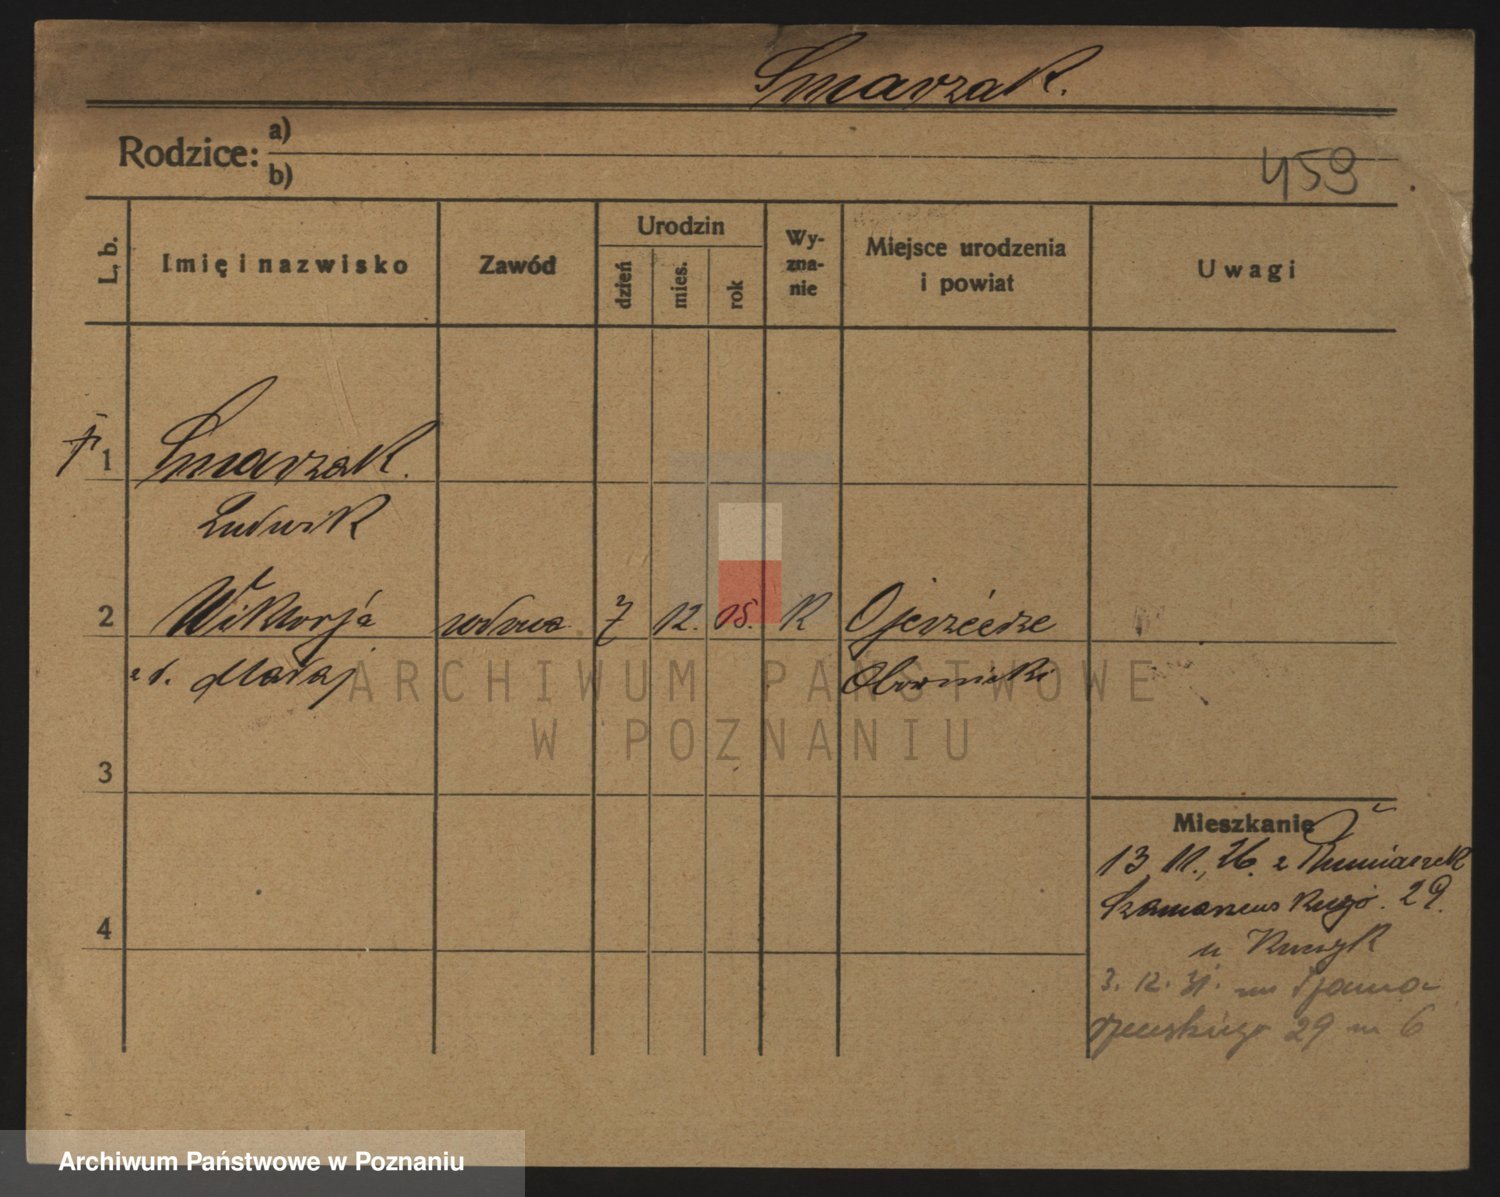 Smarzak.
Rodzice: a)
b)
459
L. b. Imię i nazwisko Zawód Urodzin dzień mies. rok Wy-zna-nie Miejsce urodzenia i powiat Uwagi
† 1 Smarzak.
Ludwik
2 Wiktorja wdowa 7 12. R
Obornicki
ARCHIWUM PAŃSTWOWE
W POZNANIU
3
Mieszkanie
13.11.26. z
29.
4
u
3. 12. 31.
29 m 6
Archiwum Państwowe w Poznaniu